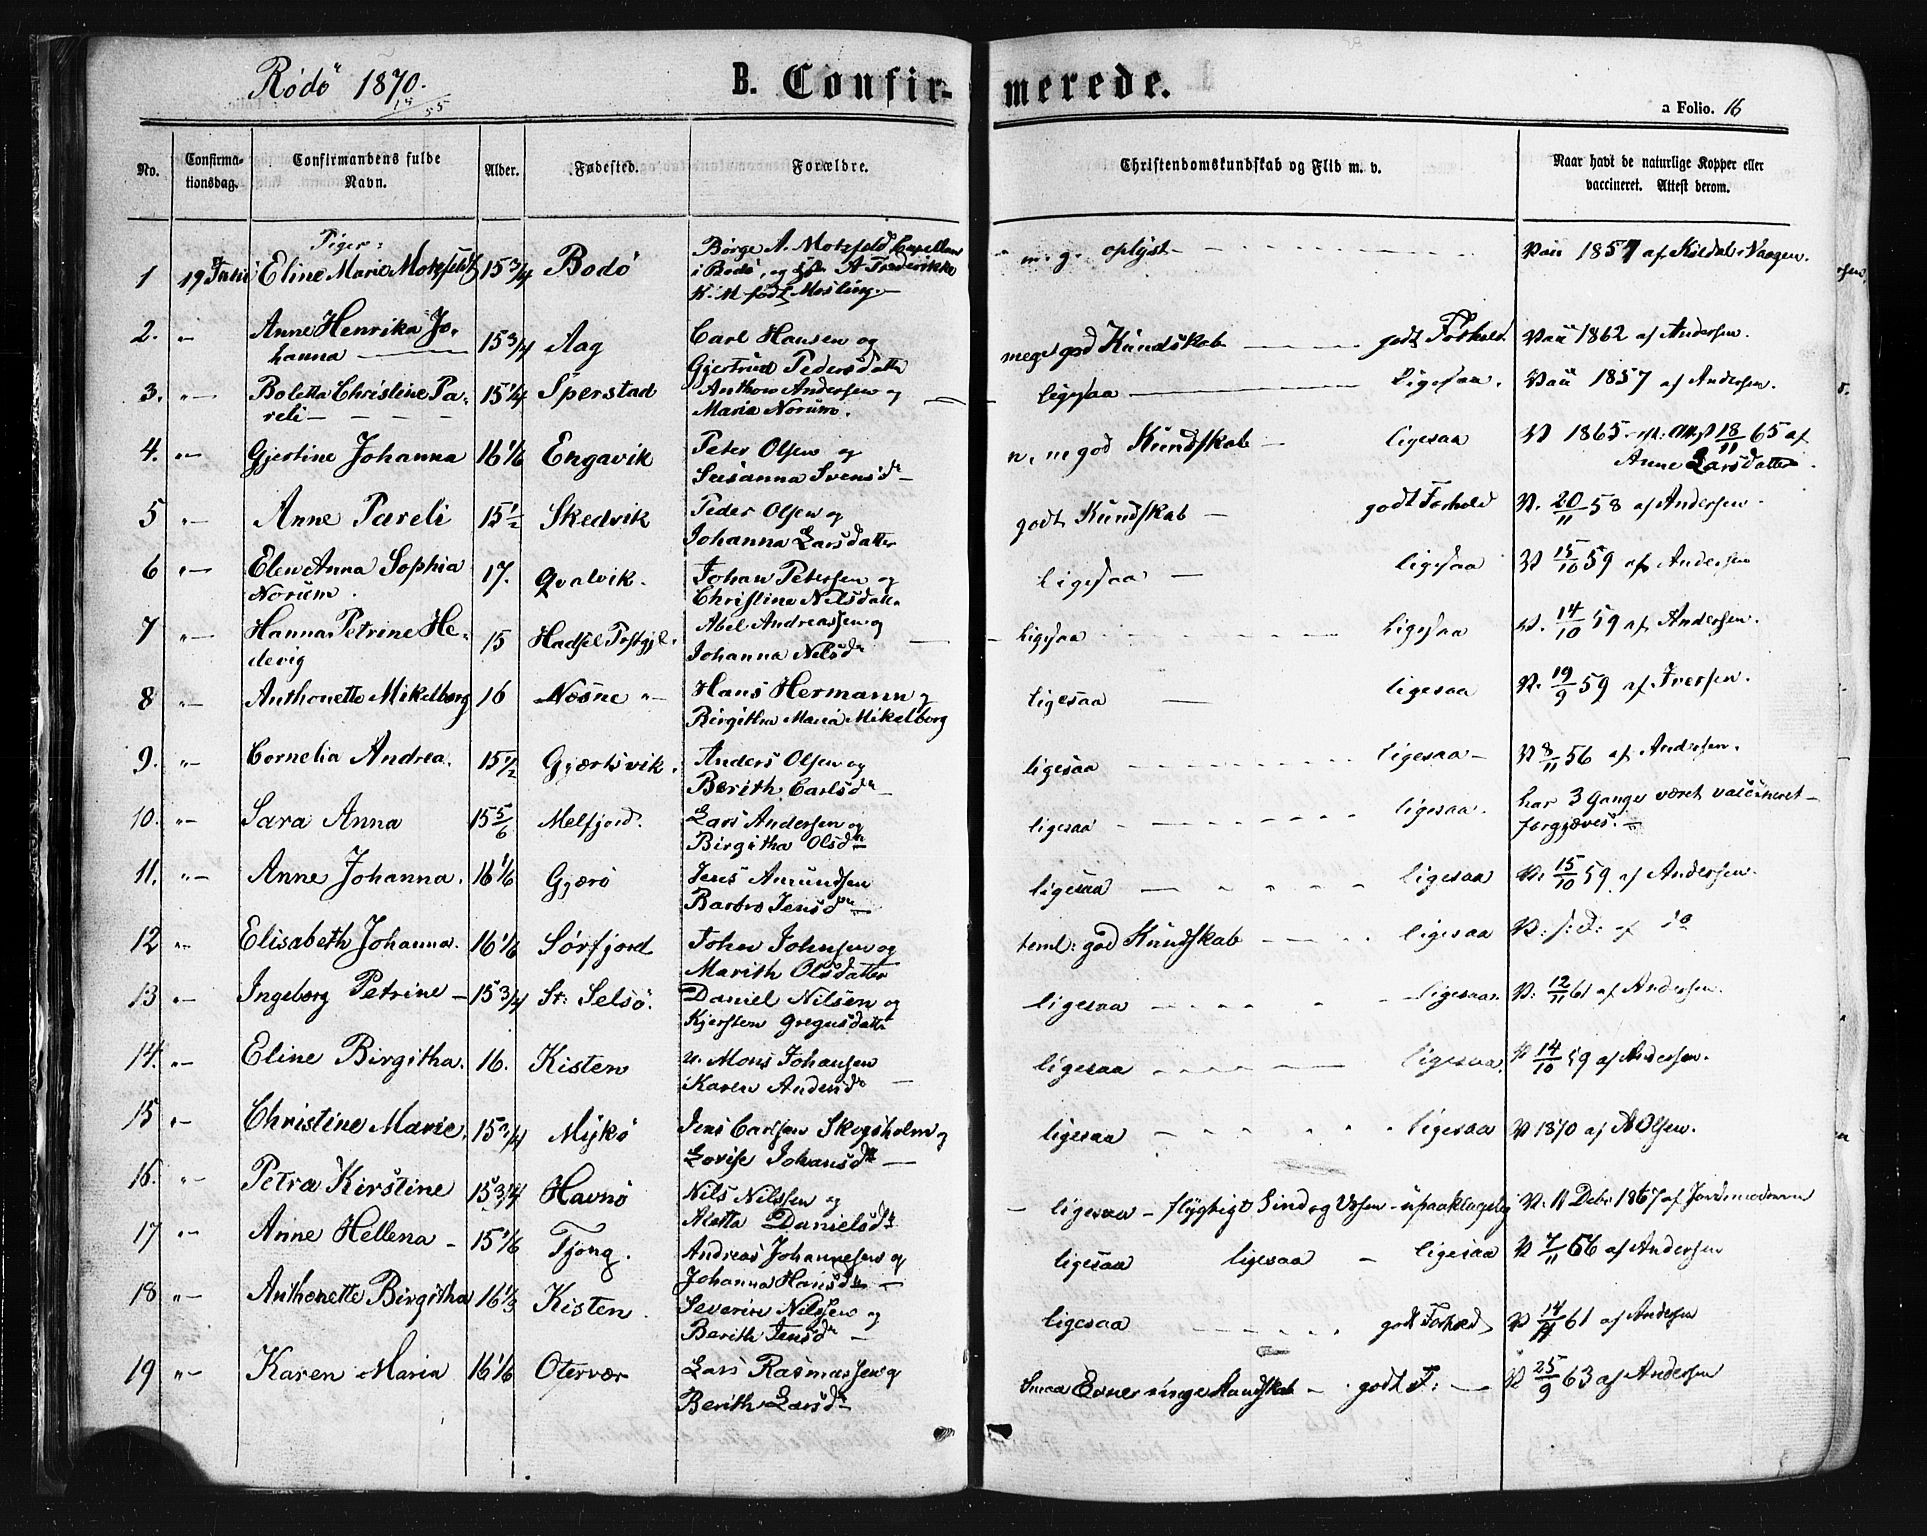 Rödö 1870.
B. Confir- merede.
a Folio. 16
No. Confirma-tionsdag. Confirmandens fulde Navn. Alder. Fødested. Forældre. Christendomskundskab og Flid m. v. Naar havt de naturlige Kopper eller vaccineret. Attest derom.
Piger:
1 19 Juni Eline Marie Motzfeldt 15 3/4 Bodö Børge A. Motzfeld Capellan i Bodö, og A Frederikke K. M født Mosling. m. g. oplyst Vac 1857 af Kildal i Vaagen.
2. "- Anne Henrika Johanna 15 3/4 Aag Carl Hansen og Gjertrud Pedersdatter meget god Kundskab godt Forhold Vac 1862 af Andersen.
3. "- Boletta Christine Pareli 15 1/4 Sperstad Anthon Andersen og Maria Norum. ligesaa ligesaa. Vac 1857 af Andersen.
4. "- Gjertine Johanna 16 1/6 Engavik Peter Olsen og Susanna Svensdr n. m god Kundskab ligesaa V 1865 Att 18/11 65 af Anne Larsdatter.
5 "- Anne Pareli 15 1/2 Skedvik Peder Olsen og Johanna Larsdatter godt Kundskab godt Forhold V. 20/11 58 af Andersen
6 "- Elen Anna Sophia Norum. 17. Qvalvik. Johan Petersen og Christine Nilsdatter ligesaa ligesaa V 15/10 59 af Andersen
7 "- Hanna Petrine Hedevig 15 Hadsel Pstgjl. Abel Andreassen og Johanna Nelsdr Ligesaa Ligesaa V. 14/10 59 af Andersen.
8 "- Anthonette Mikelborg 16 Nesne "- Hans Hermann og Birgitha Maria Mikelborg ligesaa ligesaa V. 19/9 59 af Iversen.
9. "- Cornelia Andrea. 15 1/2 Gjærtsvik. Anders Olsen og Berith Carlsdr ligesaa ligesaa V 8/11 56 af Andersen.
10. "- Sara Anna 15 5/6 Melfjord. Lars Andersen og Birgitha Olsdtr ligesaa ligesaa. har 3 Gange været vaccineret forgjæves.
11. "- Anne Johanna. 16 1/6 Gjærö Jens Amundsen Barbro Jensdtr ligesaa ligesaa V. 15/10 59 af Andersen.
12 "- Elisabeth Johanna. 16 1/6 Sörfjord John Johnsen og Marith Olsdatter teml: god Kundskab ligesaa V: s: D: af do
13 "- Ingeborg Petrine 15 3/4 St: Selsö. Daniel Nilsen og Kjersten Gregusdatter ligesaa ligesaa. V: 12/11 61 af Andersen.
14. "- Eline Birgitha. 16. Kisten Mons Johansen Karen Andersdr ligesaa ligesaa. V 14/10 59 af Andersen.
15 "- Christine Marie. 15 3/4 Mykö Jens Carlsen Skogsholm og Lovise Johansdtr ligesaa ligesaa V 1870 af AOlsen.
16. "- Petra Kirstine 15 3/4 Havnö Nils Nilssen og Aletta Danielsdtr ligesaa - flygtigt Sind og Væsen - upaaklagelig V. 11 Debr 1867 af Jordmoderen
17 "- Anne Hellena 15 1/6 Tjong. Andreas Johannesen og Johanna Hansdtr ligesaa ligesaa - ligesaa V 7/11 56 af Andersen
18 "- Anthonette Birgitha 16 1/3 Kisten. Severin Nilssen og Berith Jensdr ligesaa godt Forhold V 14/11 61 af Andersen
19 "- Karen Maria 16 1/6 Otervær Lars Rasmussen og Berith Larsdtr Smaa Evner ringe Kundskab - godt F: V 25/9 63 af Andersen